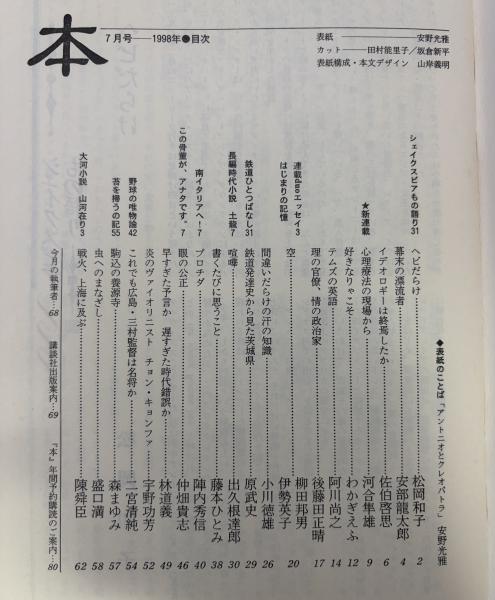 本
7月号——1998年●目次
表紙————安野光雅
カット——田村能里子／坂倉新平
表紙構成・本文デザイン 山岸義明
◆表紙のことば「アントニオとクレオパトラ」 安野光雅
シェイクスピアもの語り31 ヘビだらけ……松岡和子 2
幕末の漂流者……安部龍太郎 4
イデオロギーは終焉したか……佐伯啓思 6
★新連載 心理療法の現場から……河合隼雄 9
好きなりゃこそ……わかぎえふ 12
テムズの英語……阿川尚之 14
理の官僚、情の政治家……後藤田正晴 17
連載duoエッセイ3
はじまりの記憶
空……柳田邦男
伊勢英子 20
間違いだらけの汗の知識……小川徳雄 26
鉄道ひとつばなし31 鉄道発達史から見た茨城県……原武史 29
長編時代小説 土龍7 喧嘩……出久根達郎 30
書くたびに思うこと……藤本ひとみ 38
南イタリアへ！7 プロチダ……陣内秀信 40
この骨董が、アナタです。7 眼の公正……仲畑貴志 46
早すぎた予言か 遅すぎた時代錯誤か……林道義 49
炎のヴァイオリニスト チョン・キョンファ……宇野功芳 52
野球の唯物論42 これでも広島・三村監督は名将か……二宮清純 54
苔を掃うの記55 駒込の養源寺……森まゆみ 57
虫へのまなざし……盛口満 58
大河小説 山河在り3 戦火、上海に及ぶ……陳舜臣 62
今月の執筆者…68 講談社出版案内…69 『本』年間予約購読のご案内…80